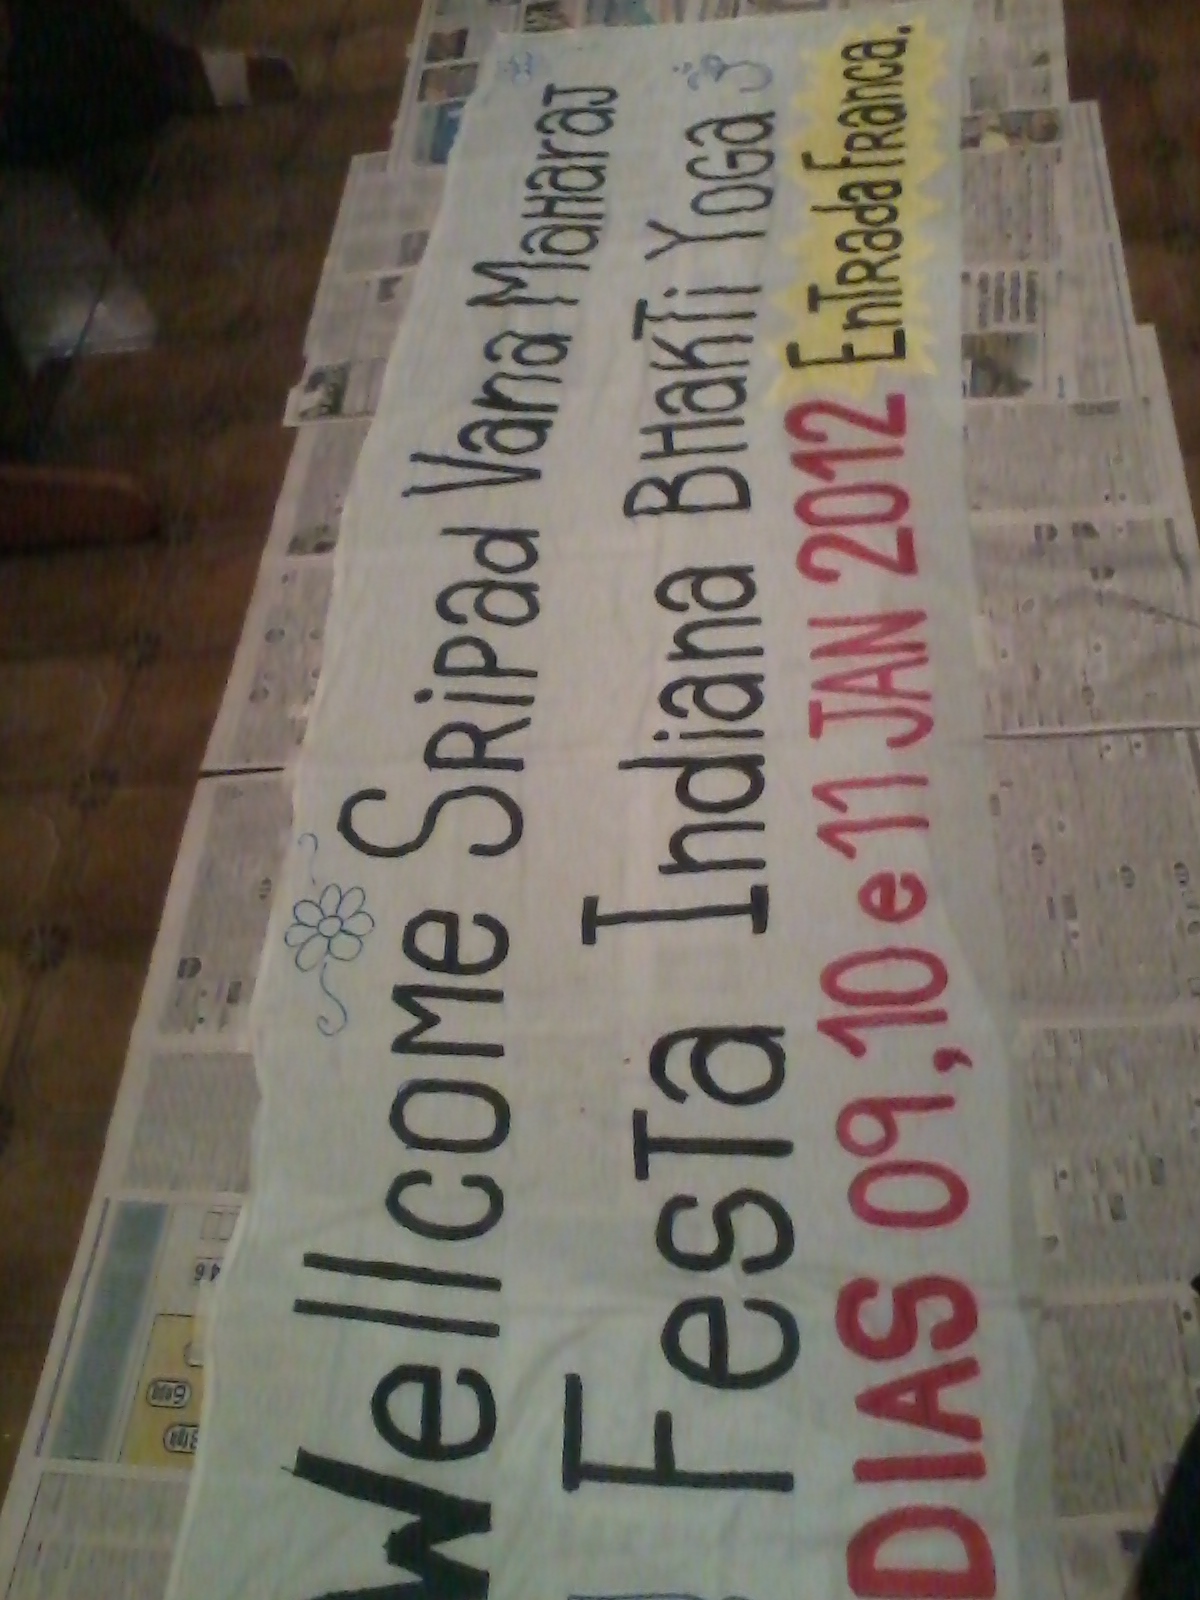 Wellcome Sripad Vana Maharaj
Festa Indiana Bhakti Yoga
DIAS 09,10 e 11 JAN 2012 Entrada Franca.